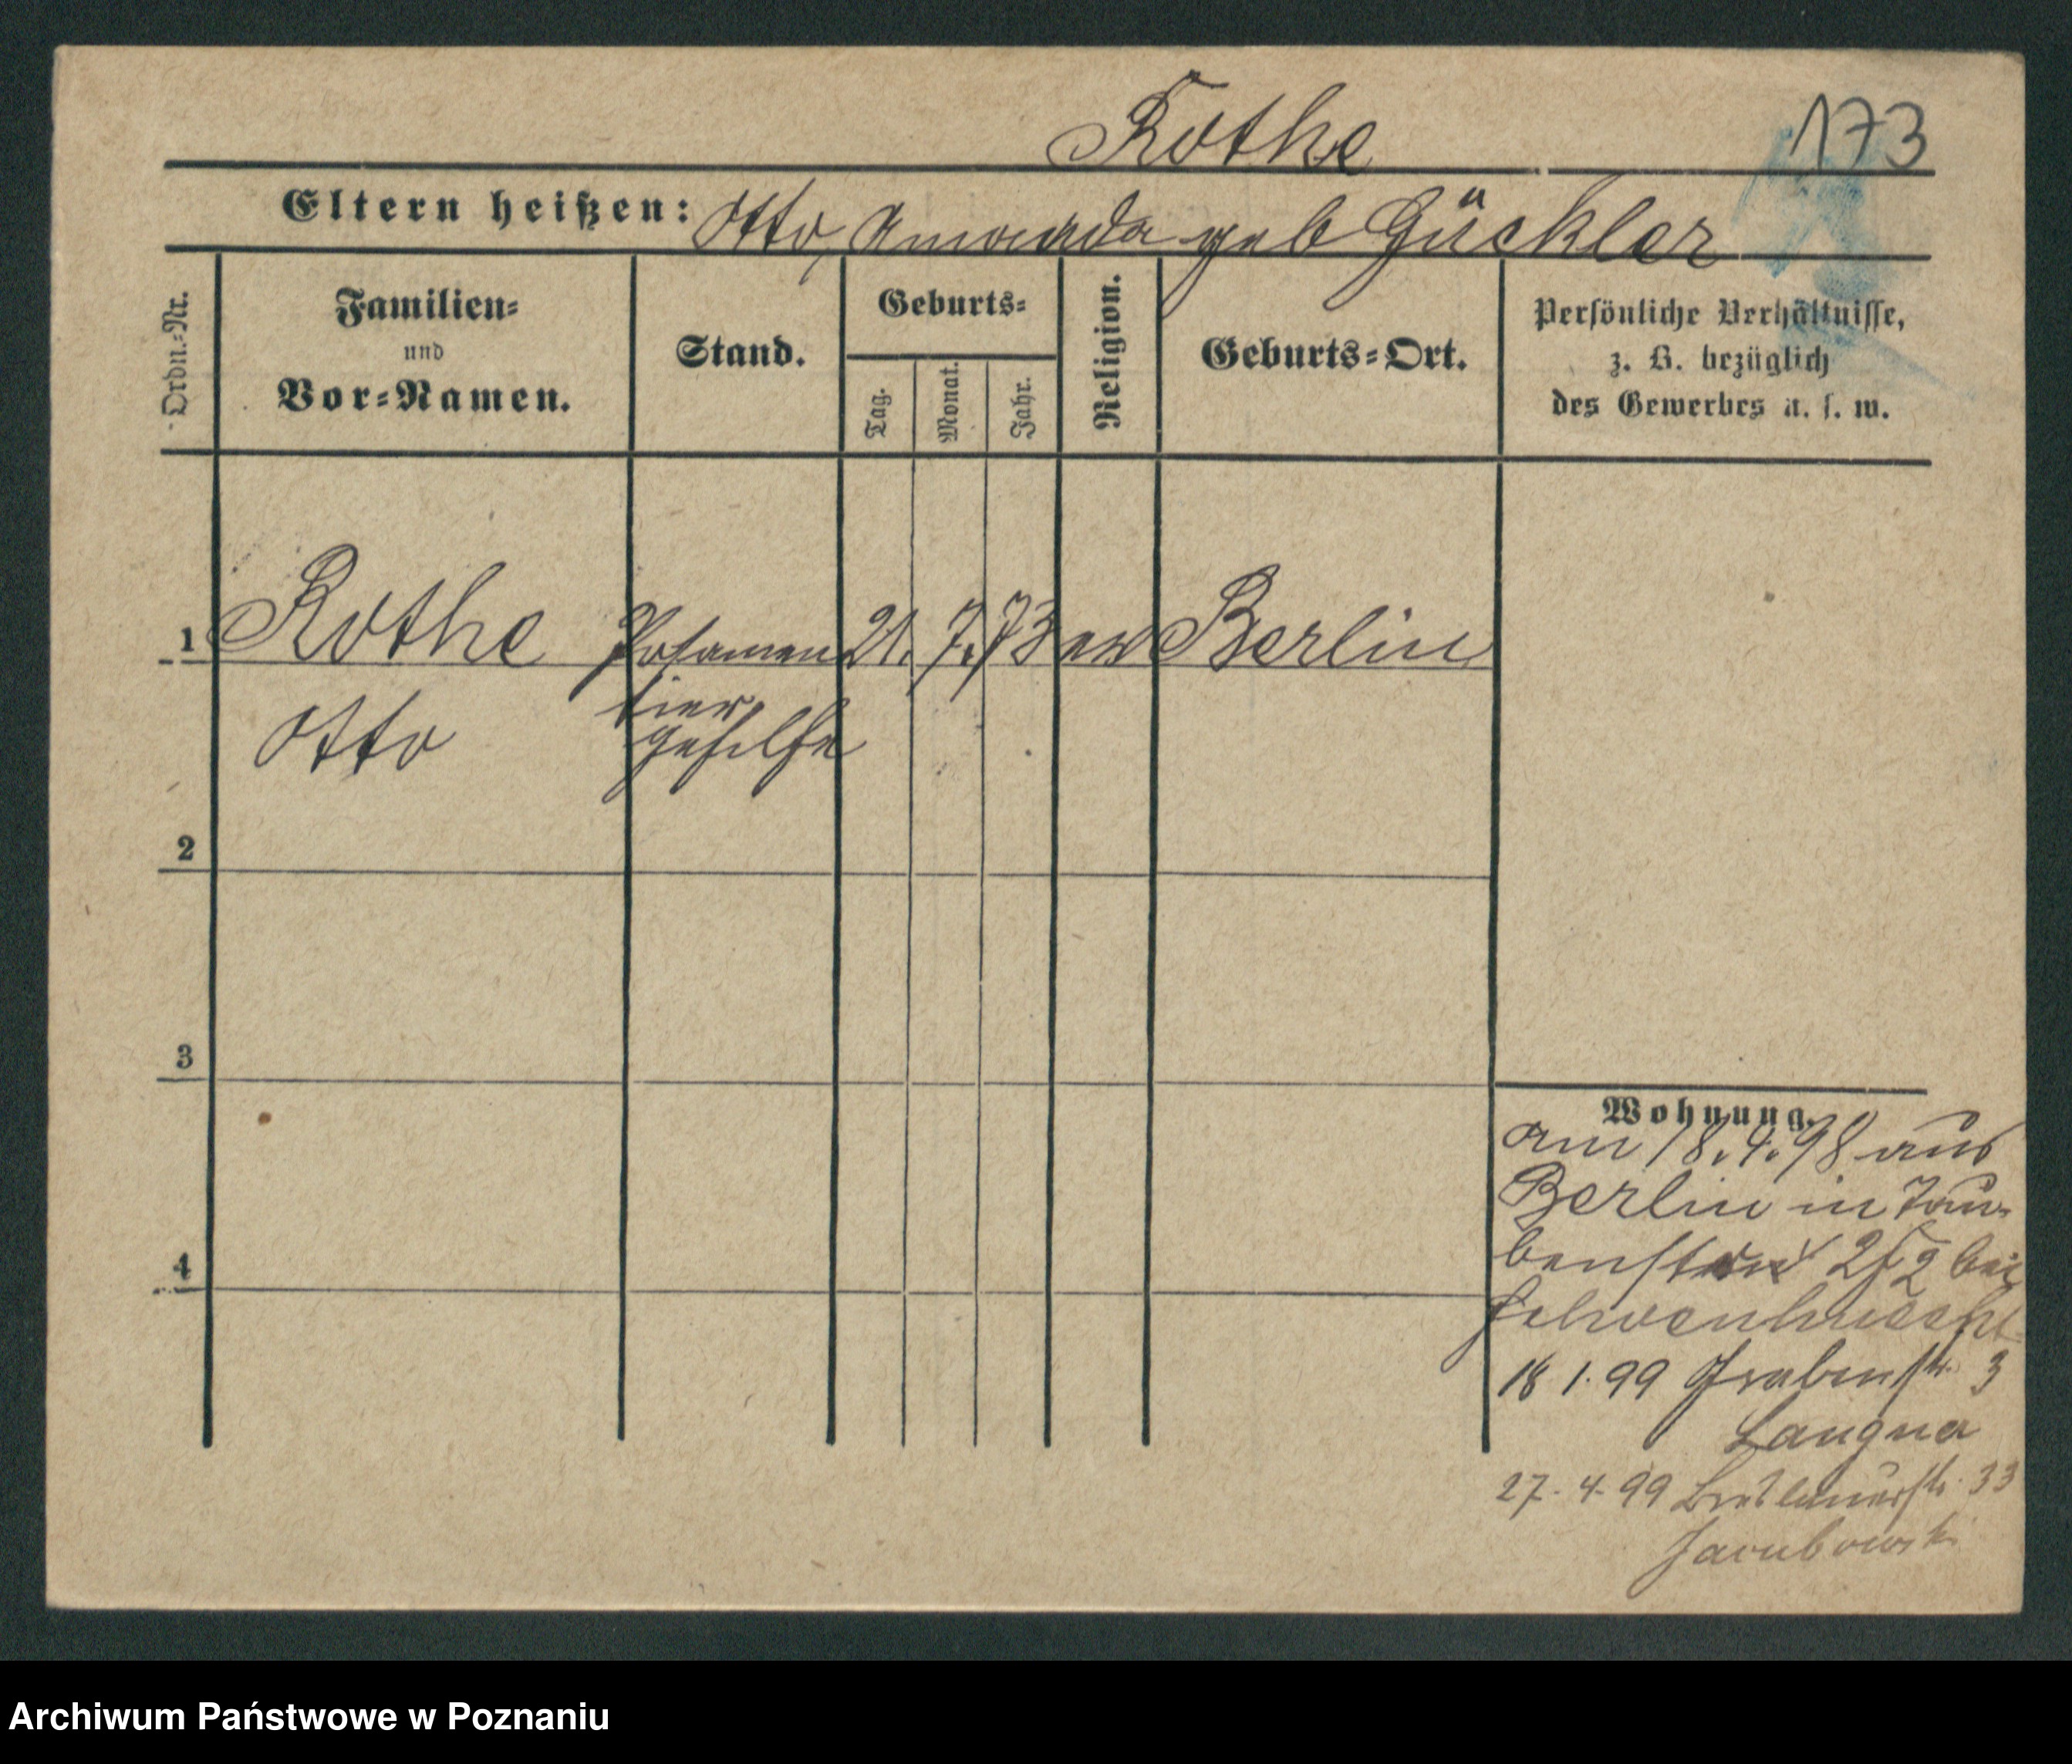 Rothe
173
Eltern heißen: Otto, Amanda geb Gückler
Ordn.-Nr.
Familien-
und
Vor-Namen.
Stand.
Geburts-
Tag.
Monat.
Jahr.
Religion.
Geburts-Ort.
Persönliche Verhältnisse,
z. B. bezüglich
des Gewerbes u. s. w.
1 Rothe Posamen 21. 7. 73 ev Berlin
Otto
tier
gehilfe
2
3
4
Wohnung.
am 18.4.98 aus
Berlin in Tau-
benstr 2 bei
18 1. 99 Grabenstr. 3
Langner
27. 4. 99 33
Jacubowski
Archiwum Państwowe w Poznaniu